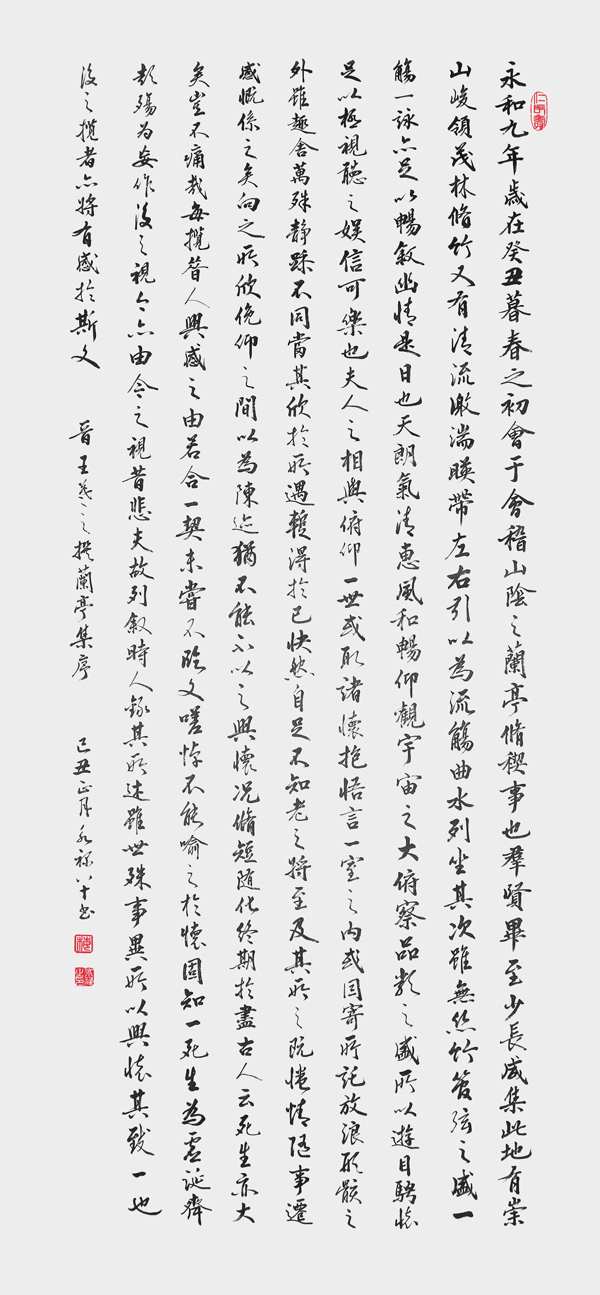 永和九年歲在癸丑暮春之初會于會稽山陰之蘭亭脩稧事也羣賢畢至少長咸集此地有崇
山峻領茂林脩竹又有清流激湍暎帶左右引以為流觴曲水列坐其次雖無絲竹管弦之盛一
觴一詠亦足以暢敘幽情是日也天朗氣清惠風和暢仰觀宇宙之大俯察品類之盛所以遊目騁懷
足以極視聽之娛信可樂也夫人之相與俯仰一世或取諸懷抱悟言一室之內或因寄所託放浪形骸之
外雖趣舍萬殊靜躁不同當其欣於所遇暫得於己快然自足不知老之將至及其所之既惓情隨事遷
感慨係之矣向之所欣俛仰之間以為陳迹猶不能不以之興懷況脩短隨化終期於盡古人云死生亦大
矣豈不痛哉每攬昔人興感之由若合一契未嘗不臨文嗟悼不能喻之於懷固知一死生為虛誕齊
彭殤為妄作後之視今亦由今之視昔悲夫故列敘時人錄其所述雖世殊事異所以興懷其致一也
後之攬者亦將有感於斯文 晉王羲之撰蘭亭集序 己丑正月永八十書